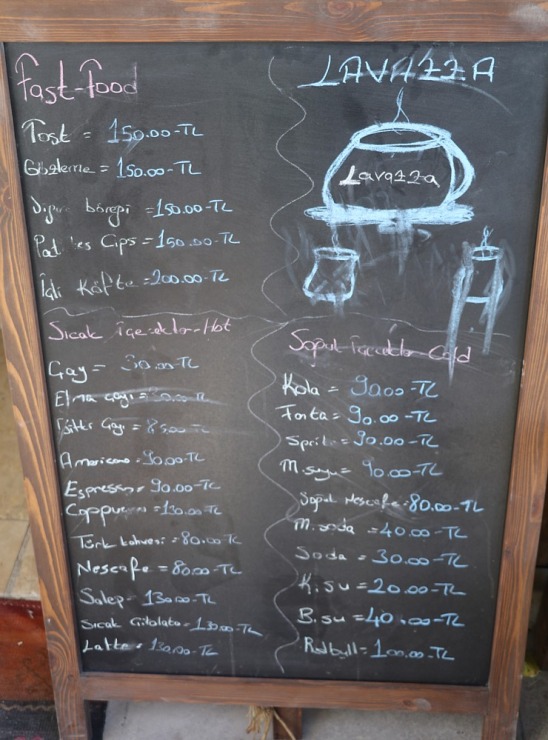 Fast-Food
Tost = 150.00-TL
Gözleme = 150.00-TL
böreği = 150.00-TL
Pat es Cips = 150.00-TL
İçli Köfte = 200.00-TL
Sıcak İçecekler-Hot
Çay = 30.00-TL
Elma çayı =
Çayı =
Americano = 90.00-TL
Espresso = 90.00-TL
= 130.00-TL
Türk kahvesi = 80.00-TL
Nescafe = 80.00-TL
Salep = 130.00-TL
Sıcak Çikolata = 130.00-TL
Latte = 130.00-TL
LAVAZZA
Lavazza
Soğuk İçecekler-Cold
Kola = 90.00-TL
Fanta = 90.00-TL
Sprit = 90.00-TL
M.suyu = 90.00-TL
Soğuk Nescafe = 80.00-TL
M.soda = 40.00-TL
Soda = 30.00-TL
K.su = 20.00-TL
B.su = 40.00-TL
Redbull = 100.00-TL